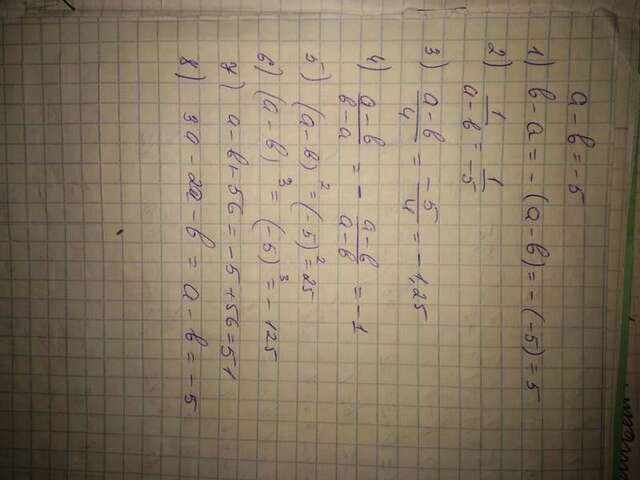 a - b = -5
1) b - a = - (a - b) = - (-5) = 5
2) 1/(a - b) = 1/-5
3) (a - b)/4 = -5/4 = -1,25
4) (a - b)/(b - a) = - (a - b)/(a - b) = -1
5) (a - b)² = (-5)² = 25
6) (a - b)³ = (-5)³ = -125
7) a - b + 56 = -5 + 56 = 51
8) 3a - 2a - b = a - b = -5